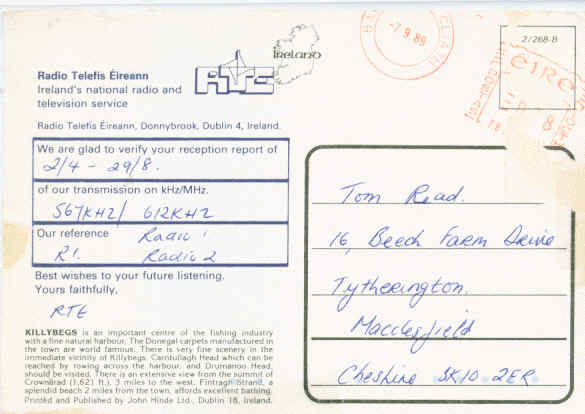 Radio Telefís Éireann
Ireland's national radio and
television service
RTE
IRELAND
Radio Telefís Éireann, Donnybrook, Dublin 4, Ireland.
We are glad to verify your reception report of
2/4 - 29/8.
of our transmission on kHz/MHz.
567KHZ/ 612KHZ
Our reference Radio 1
R1. Radio 2
Best wishes to your future listening.
Yours faithfully,
RTE
KILLYBEGS is an important centre of the fishing industry
with a fine natural harbour. The Donegal carpets manufactured in
the town are world famous. There is very fine scenery in the
immediate vicinity of Killybegs. Carntullagh Head which can be
reached by rowing across the harbour, and Drumanon Head,
should be visited. There is an extensive view from the summit of
Crownarad (1,621 ft.), 3 miles to the west. Fintragh Strand, a
splendid beach 2 miles from the town, affords excellent bathing.
Printed and Published by John Hinde Ltd., Dublin 18, Ireland.
-7 9 89
2/268-B
éIRE
Tom Read.
16, Beech Farm Drive
Tytherington.
Macclesfield
Cheshire SK10 2ER